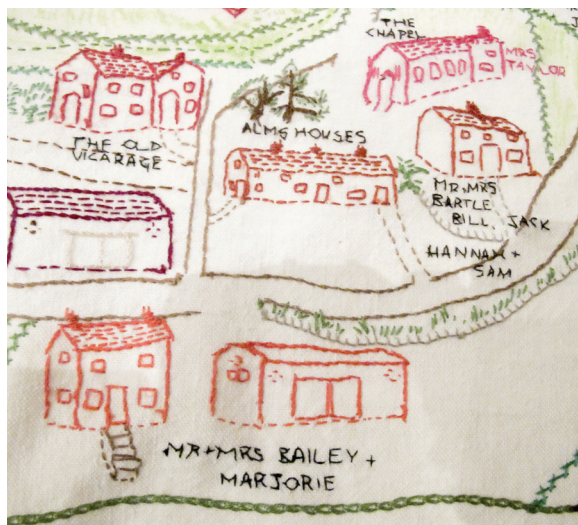 THE
CHAPEL
MRS
TAYLOR
THE OLD
VICARAGE
ALMS HOUSES
MR, MRS
BARTLE
BILL JACK
HANNAH +
SAM
MR+MRS BAILEY +
MARJORIE